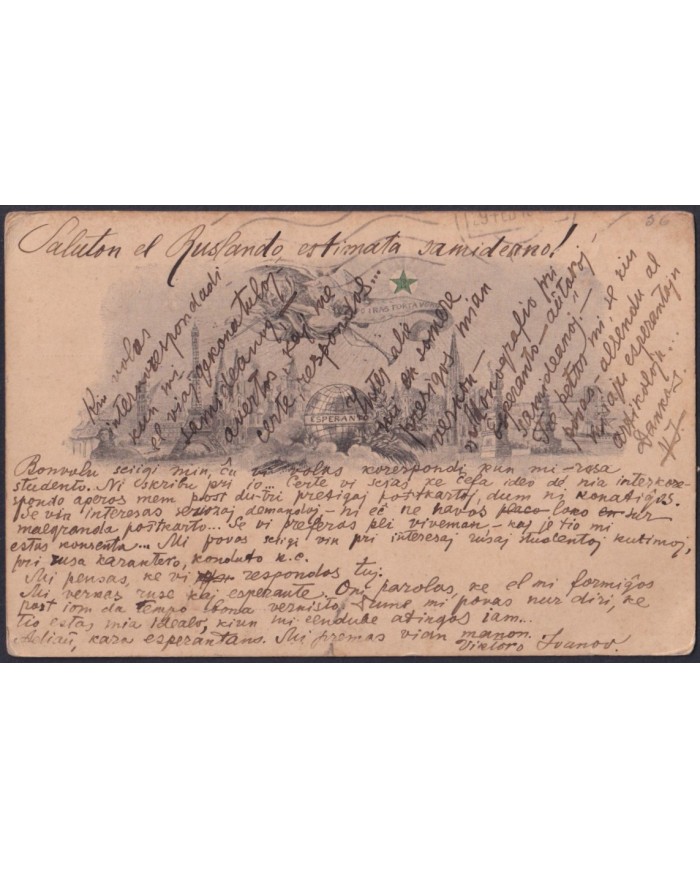 Saluton el Ruslando, estimata samideano!
Kiu volas
interkorespondadi
kun mi
el viaj gekonatuloj
samideanoj –
avertos, kaj me
certe respondos...
Inter alie
mi en somere
presigos mian
verkon –
Monografio pri
esperanto-
samideanoj –
petos mi se vi
povas, alsendu al
mi viajn esperantajn
artikolojn...
Dankas
ESPERANTO
Bonvolu sciigi min, ĉu vi volas korespondi kun mi – rusa
studento... Ni skribu pri io... Certe vi scias ke ĉefa ideo de nia interkore-
spondo aperos mem post du-tri presigaj postkartoj, dum ni konatiĝos.
Se vin interesas seriozaj demandoj – ni eĉ ne havos placo loko en sur
malgranda postkarto... Se vi preferas pli viveman – kaj je tio mi
estas konsenta... Mi povas sciigi vin pri interesaj rusaj studentaj kutimoj,
pri rusa karaktero, konduto k.c.
Mi pensas, ke vi respondos tuj.
Mi verkas ruse kaj esperante. Oni parolas, ke el mi formiĝos
post iom da tempo bona verkisto, sume mi povas nur diri, ke
tio estas mia idealo, kiun mi sendube atingos iam...
Adiaŭ, kara esperantano. Mi premas vian manon.
Viktoro Ivanov.